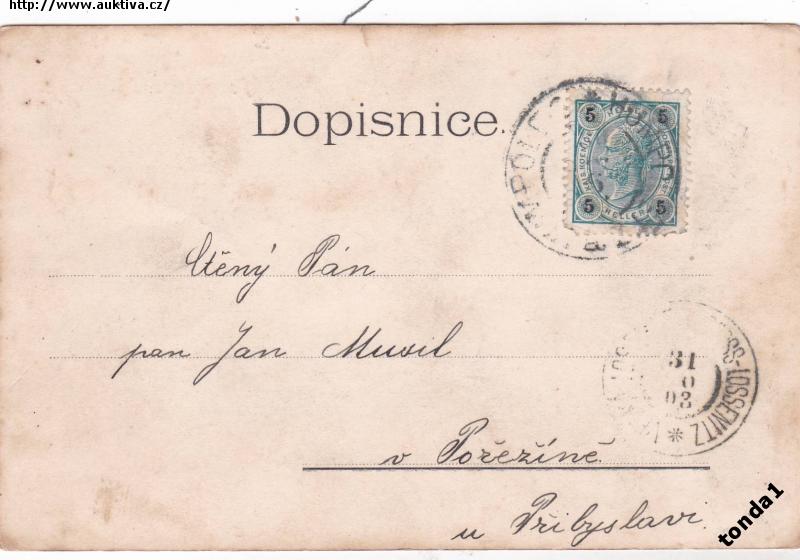 http://www.auktiva.cz/
Dopisnice.
5 5
HELLER
5 5
Ctěný Pán
pan Jan Musil
31
03
SS-LOSSENITZ
v Pořežíně
u Přibyslavi.
tonda1